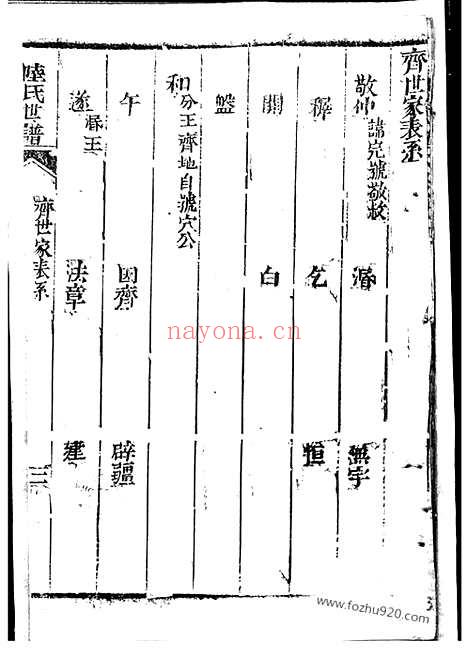 齊世家表系
敬仲 諱完號敬敉 湣 無宇
穉 乞 恒
開 白
盤
和 分王齊地自號穴公
午 因齊 辟疆
遂 湣王 法章 建
陸氏世譜 齊世家表系 三
nayona.cn
www.fozhu920.com